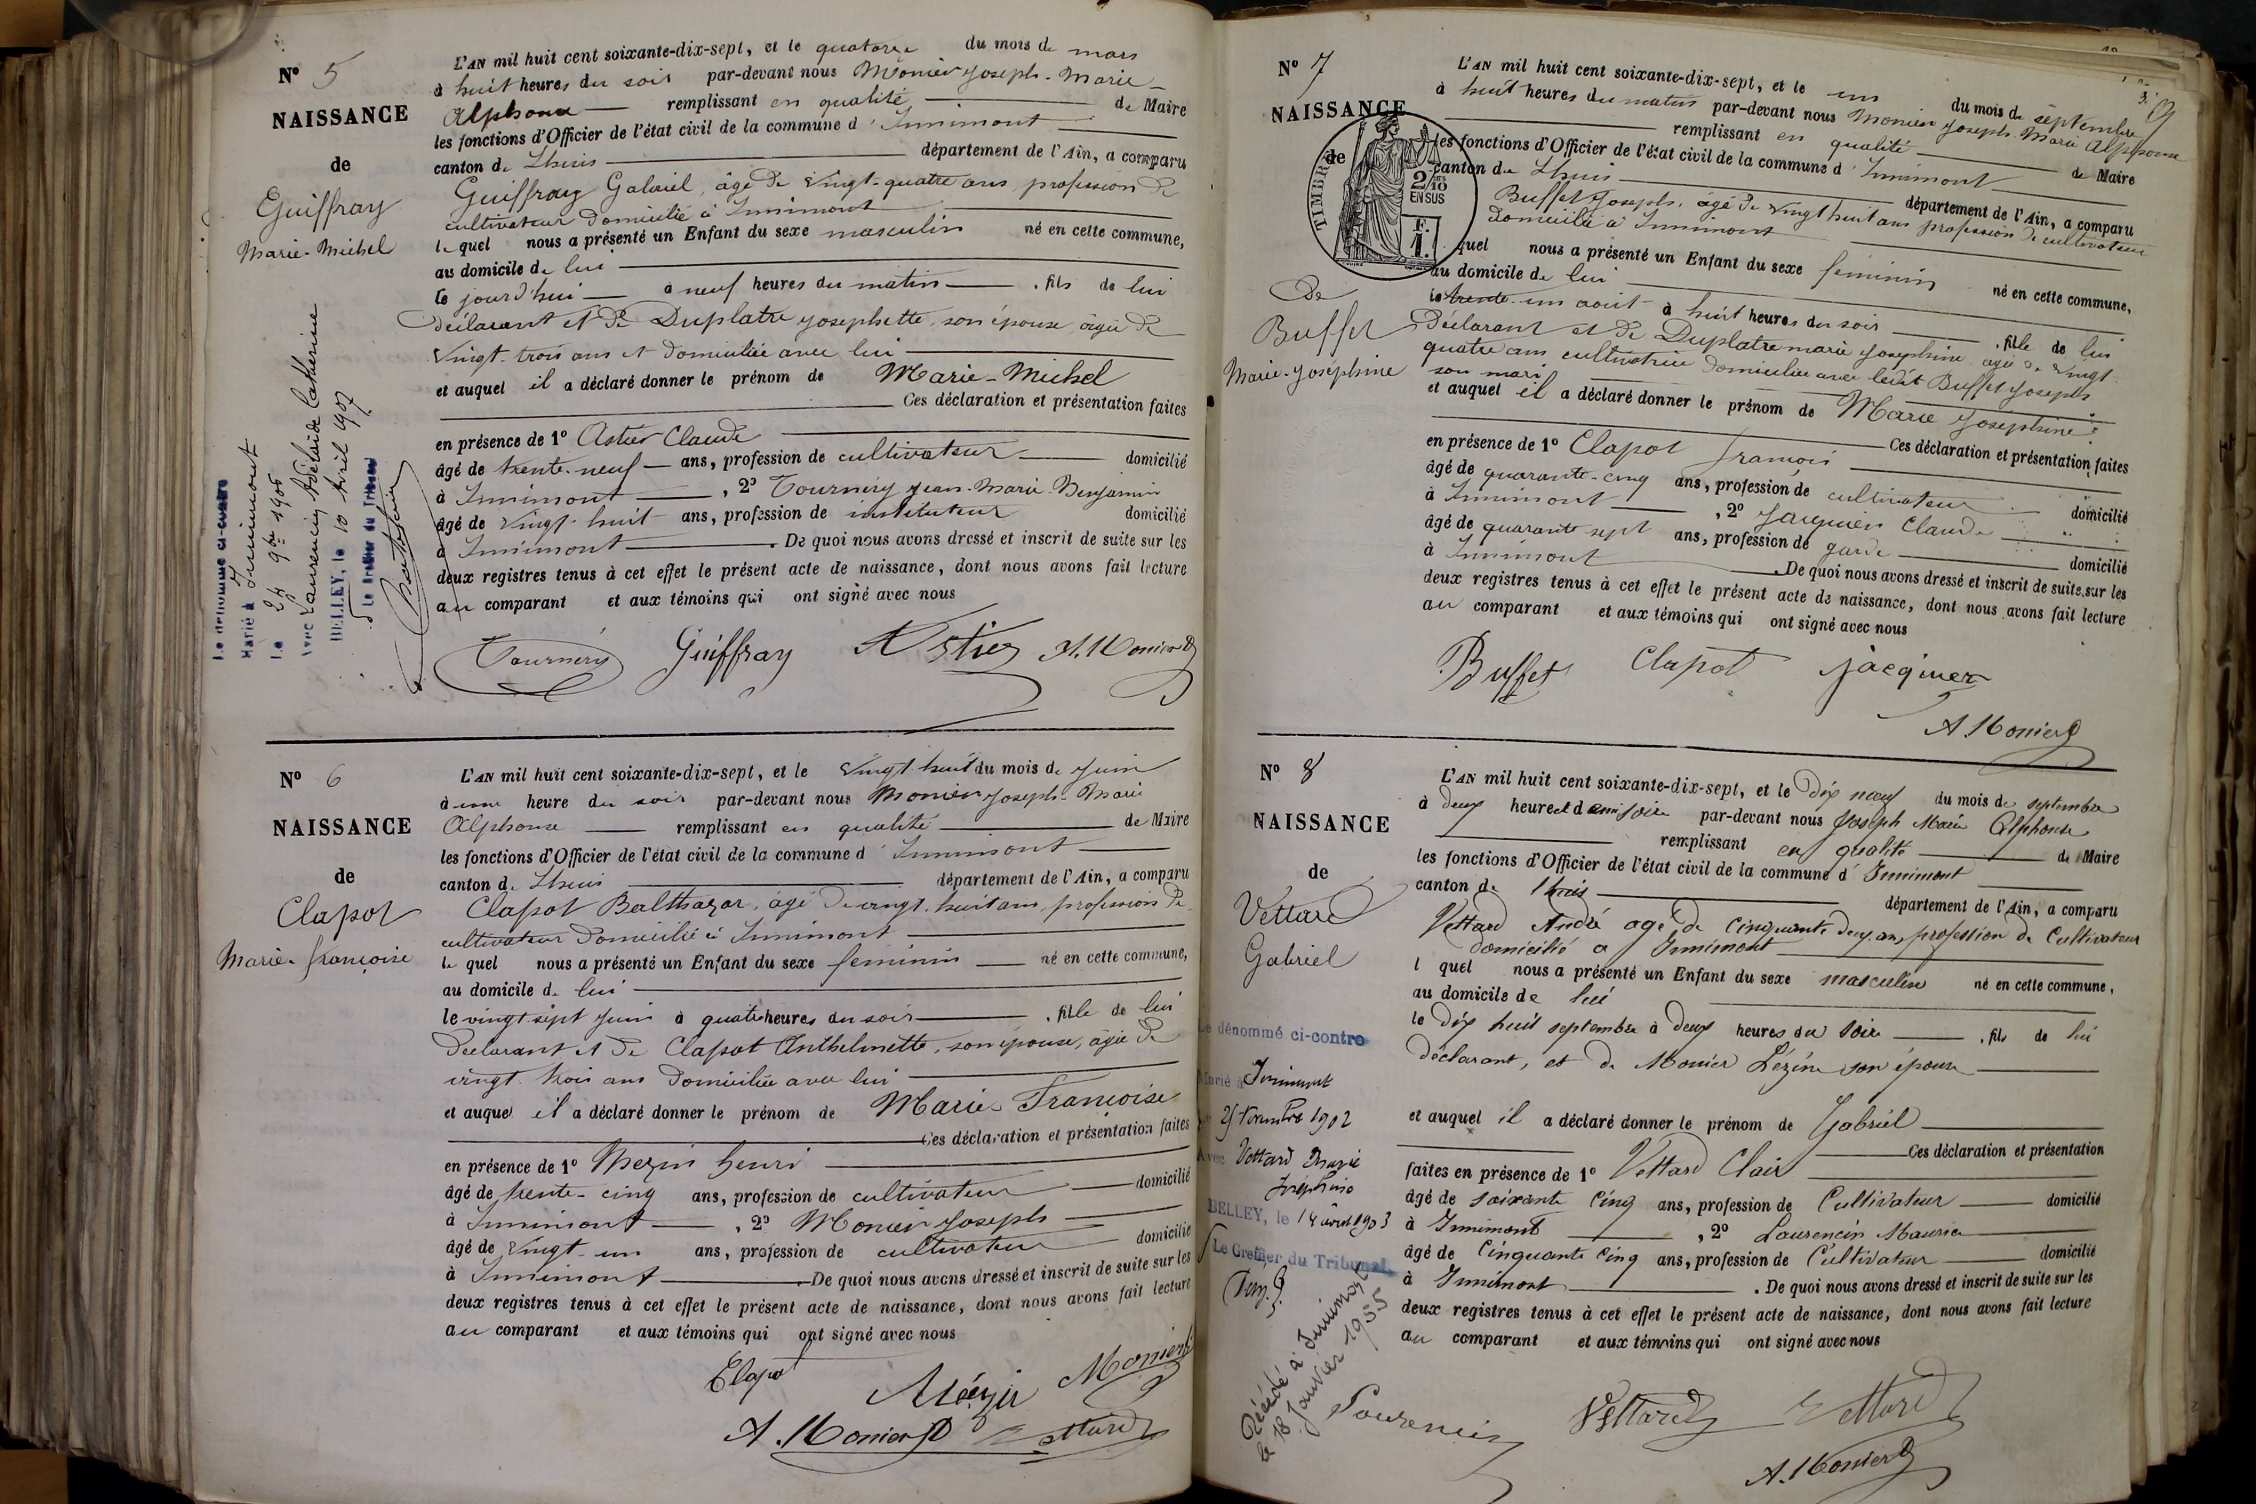 N° 5
NAISSANCE
de
Guiffray
Marie-Michel
Le dénommé ci-contre
Marié à Innimont
Le 24 9bre 1906
avec Laurencin Adélaïde Catherine
BELLEY, le 10 Avril 1907
Le Greffier du Tribunal
L'AN mil huit cent soixante-dix-sept, et le quatorze du mois de mars
à huit heures du soir par-devant nous Monier Joseph-Marie-
Alphonse remplissant en qualité de Maire
les fonctions d'Officier de l'état civil de la commune d'Innimont
canton de Lhuis département de l'Ain, a comparu
Guiffray Gabriel, âgé de vingt-quatre ans, profession de
cultivateur domicilié à Innimont
le quel nous a présenté un Enfant du sexe masculin né en cette commune,
au domicile de lui
le jourd'hui à neuf heures du matin, fils de lui
déclarant et de Duplatre Josephette, son épouse, âgée de
vingt-trois ans et domiciliée avec lui
et auquel il a déclaré donner le prénom de Marie-Michel
Ces déclaration et présentation faites
en présence de 1° Astier Claude
âgé de trente-neuf ans, profession de cultivateur domicilié
à Innimont, 2° Tournéry Jean-Marie-Benjamin
âgé de vingt-huit ans, profession de instituteur domicilié
à Innimont. De quoi nous avons dressé et inscrit de suite sur les
deux registres tenus à cet effet le présent acte de naissance, dont nous avons fait lecture
au comparant et aux témoins qui ont signé avec nous
Tournéry Guiffray Astier A. Monier
N° 6
NAISSANCE
de
Clapot
Marie-françoise
L'AN mil huit cent soixante-dix-sept, et le vingt huit du mois de Juin
à une heure du soir par-devant nous Monier Joseph-Marie
Alphonse remplissant en qualité de Maire
les fonctions d'Officier de l'état civil de la commune d'Innimont
canton de Lhuis département de l'Ain, a comparu
Clapot Balthazar, âgé de vingt-huit ans, profession de
cultivateur domicilié à Innimont
le quel nous a présenté un Enfant du sexe feminin né en cette commune,
au domicile de lui
le vingt sept Juin à quatre heures du soir, fille de lui
déclarant et de Clapot Anthelmette, son épouse, âgée de
vingt-trois ans domiciliée avec lui
et auquel il a déclaré donner le prénom de Marie-Françoise
Ces déclaration et présentation faites
en présence de 1° Mezin henri
âgé de trente-cinq ans, profession de cultivateur domicilié
à Innimont, 2° Monier Joseph
âgé de vingt-un ans, profession de cultivateur domicilié
à Innimont. De quoi nous avons dressé et inscrit de suite sur les
deux registres tenus à cet effet le présent acte de naissance, dont nous avons fait lecture
au comparant et aux témoins qui ont signé avec nous
Clapot Mézin Monier
A. Monier Vettard
N° 7
NAISSANCE
de
TIMBRE
2/10 EN SUS
F. 1.
De
Buffet
Marie-Joséphine
L'AN mil huit cent soixante-dix-sept, et le un du mois de septembre
à huit heures du matin par-devant nous Monier Joseph Marie Alphonse
remplissant en qualité de Maire
les fonctions d'Officier de l'état civil de la commune d'Innimont
canton de Lhuis département de l'Ain, a comparu
Buffet Joseph, âgé de vingt huit ans profession de cultivateur
domicilié à Innimont
quel nous a présenté un Enfant du sexe féminin né en cette commune,
au domicile de lui
le trente-un aout à huit heures du soir, fille de lui
déclarant et de Duplatre marie Josephine âgée de vingt
quatre ans cultivatrice domiciliée avec ledit Buffet Joseph
son mari
et auquel il a déclaré donner le prénom de Marie Joséphine
Ces déclaration et présentation faites
en présence de 1° Clapot francois
âgé de quarante-cinq ans, profession de cultivateur domicilié
à Innimont, 2° Jacquier Claude
âgé de quarante sept ans, profession de garde domicilié
à Innimont. De quoi nous avons dressé et inscrit de suite sur les
deux registres tenus à cet effet le présent acte de naissance, dont nous avons fait lecture
au comparant et aux témoins qui ont signé avec nous
Buffet Clapot Jacquier
A. Monier
N° 8
NAISSANCE
de
Vettard
Gabriel
Le dénommé ci-contre
Marié à Innimont
25 Novembre 1902
Avec Vettard Marie
Joséphine
BELLEY, le 14 avril 1903
Le Greffier du Tribunal
Décédé à Innimont
le 18 Janvier 1955
L'AN mil huit cent soixante-dix-sept, et le Dix neuf du mois de septembre
à deux heures et demi soir par-devant nous Joseph Marie Alphonse
remplissant en qualité de Maire
les fonctions d'Officier de l'état civil de la commune d'Innimont
canton de Lhuis département de l'Ain, a comparu
Vettard André agé de cinquante deux ans, profession de Cultivateur
domicilié a Innimont
l quel nous a présenté un Enfant du sexe masculin né en cette commune,
au domicile de lui
le Dix huit septembre à deux heures du soir, fils de lui
déclarant, et de Monier Lézine son épouse
et auquel il a déclaré donner le prénom de Gabriel
Ces déclaration et présentation
faites en présence de 1° Vettard Clair
âgé de soixante cinq ans, profession de Cultivateur domicilié
à Innimont, 2° Laurencin Maurice
âgé de cinquante cinq ans, profession de Cultivateur domicilié
à Innimont. De quoi nous avons dressé et inscrit de suite sur les
deux registres tenus à cet effet le présent acte de naissance, dont nous avons fait lecture
au comparant et aux témoins qui ont signé avec nous
Laurencin Vettard Vettard
A. Monier